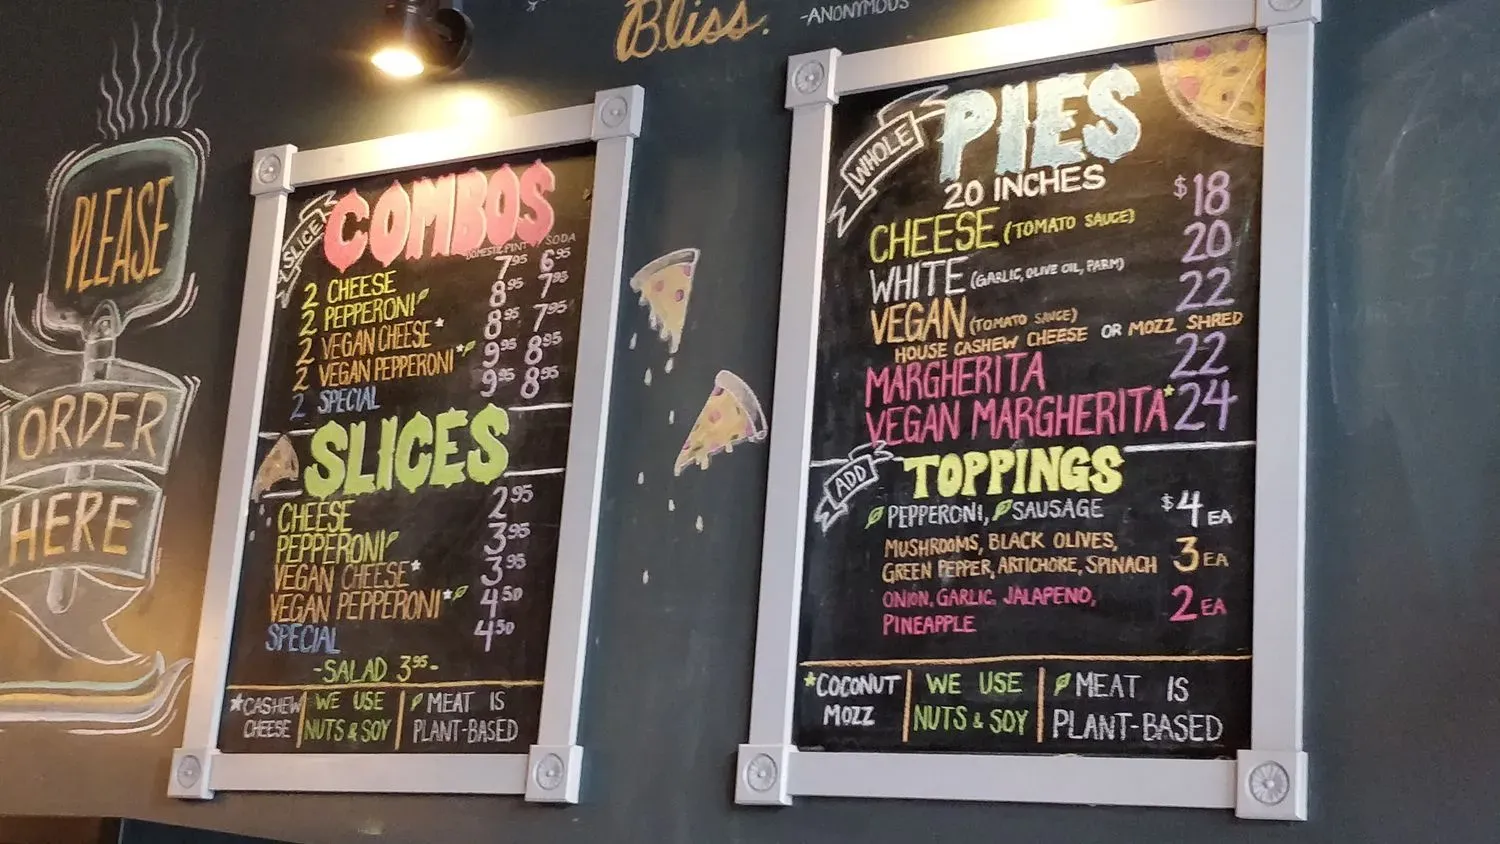 Bliss.
-ANONYMOUS
PLEASE
ORDER
HERE
SLICE
COMBOS
DOMESTIC PINT SODA
2 CHEESE 7.95 6.95
2 PEPPERONI 8.95 7.95
2 VEGAN CHEESE* 8.95 7.95
2 VEGAN PEPPERONI* 9.95 8.95
2 SPECIAL 9.95 8.95
SLICES
CHEESE 2.95
PEPPERONI 3.95
VEGAN CHEESE* 3.95
VEGAN PEPPERONI* 4.50
SPECIAL 4.50
-SALAD 3.95-
*CASHEW CHEESE
WE USE NUTS & SOY
MEAT IS PLANT-BASED
WHOLE
PIES
20 INCHES
CHEESE (TOMATO SAUCE) $18
WHITE (GARLIC, OLIVE OIL, PARM) 20
VEGAN (TOMATO SAUCE) 22
HOUSE CASHEW CHEESE OR MOZZ SHRED
MARGHERITA 22
VEGAN MARGHERITA* 24
ADD
TOPPINGS
PEPPERONI, SAUSAGE $4 EA
MUSHROOMS, BLACK OLIVES,
GREEN PEPPER, ARTICHORE, SPINACH 3 EA
ONION, GARLIC, JALAPENO, 2 EA
PINEAPPLE
*COCONUT MOZZ
WE USE NUTS & SOY
MEAT IS PLANT-BASED